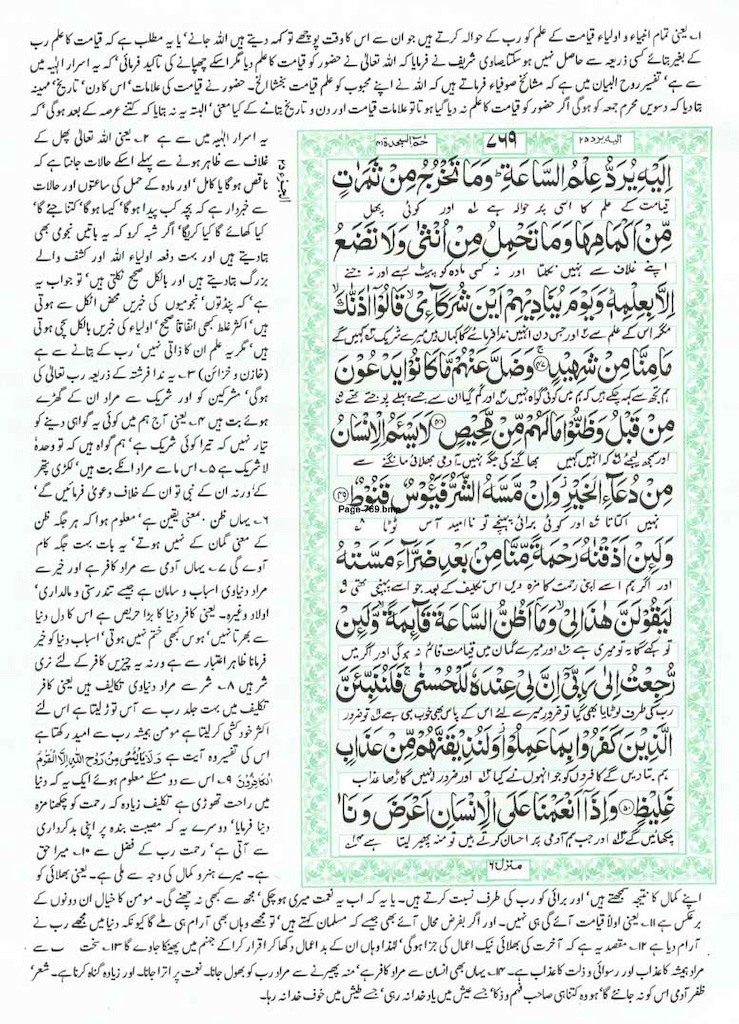 ۱۔ یعنی تمام انبیاء و اولیاء قیامت کے علم کو رب کے حوالہ کرتے ہیں جو ان سے اس کا وقت پوچھے تو کہہ دیتے ہیں اللہ جانے' یا یہ مطلب ہے کہ قیامت کا علم رب
کے بغیر بتائے کسی ذریعہ سے حاصل نہیں ہو سکتا صاوی شریف نے فرمایا کہ اللہ تعالیٰ نے حضور کو قیامت کا علم دیا مگر اسکے چھپانے کی تاکید فرمائی' کہ یہ اسرار الٰہیہ میں
سے ہے' تفسیر روح البیان میں ہے کہ مشائخ صوفیاء فرماتے ہیں کہ اللہ نے اپنے محبوب کو علم قیامت بخشا الخ۔ حضور نے قیامت کی علامات' اس کا دن' تاریخ' مہینہ
بتا دیا کہ دسویں محرم جمعہ کو ہو گی اگر حضور کو قیامت کا علم نہ دیا گیا ہو تا تو علامات قیامت اور دن و تاریخ بتانے کے کیا معنی' البتہ یہ نہ بتایا کہ کتنے عرصہ کے بعد ہو گی' کہ
الیه یرد ۲۵
۷۶۹
حٰم السجدة ۴۱
اِلَيْهِ يُرَدُّ عِلْمُ السَّاعَةِ ۚ وَمَا تَخْرُجُ مِنْ ثَمَرٰتٍ
قیامت کے علم کا اسی پر حوالہ ہے اور کوئی پھل
مِّنْ اَكْمَامِهَا وَمَا تَحْمِلُ مِنْ اُنْثٰى وَلَا تَضَعُ
اپنے غلاف سے نہیں نکلتا اور نہ کسی مادہ کو پیٹ رہے اور نہ جنے
اِلَّا بِعِلْمِهٖ ۚ وَيَوْمَ يُنَادِيْهِمْ اَيْنَ شُرَكَآءِىْ ۙ قَالُوْٓا اٰذَنّٰكَ ۙ
مگر اس کے علم سے اور جس دن انہیں ندا فرمائے گا کہاں ہیں میرے شریک کہیں گے
مَا مِنَّا مِنْ شَهِيْدٍ ۚ ﴿۴۷﴾ وَضَلَّ عَنْهُمْ مَّا كَانُوْا يَدْعُوْنَ
ہم تجھ سے کہہ چکے ہیں کہ ہم میں کوئی گواہ نہیں اور گم گیا ان سے جسے پہلے پوجتے تھے
مِنْ قَبْلُ وَظَنُّوْا مَا لَهُمْ مِّنْ مَّحِيْصٍ ﴿۴۸﴾ لَا يَسْئَمُ الْاِنْسَانُ
اور سمجھ لیئے کہ انہیں کہیں بھاگنے کی جگہ نہیں آدمی بھلائی مانگنے سے
مِنْ دُعَآءِ الْخَيْرِ ۫ وَاِنْ مَّسَّهُ الشَّرُّ فَيَئُوْسٌ قَنُوْطٌ ﴿۴۹﴾
Page-769.bmp
نہیں اکتاتا اور کوئی برائی پہنچے تو نا امید آس ٹوٹا
وَلَئِنْ اَذَقْنٰهُ رَحْمَةً مِّنَّا مِنْ بَعْدِ ضَرَّآءَ مَسَّتْهُ
اور اگر ہم اسے اپنی رحمت کا مزہ دیں اس تکلیف کے بعد جو اسے پہنچی تھی
لَيَقُوْلَنَّ هٰذَا لِىْ ۙ وَمَآ اَظُنُّ السَّاعَةَ قَآئِمَةً ۙ وَّلَئِنْ
تو کہے گا یہ تو میری ہے اور میرے گمان میں قیامت قائم نہ ہو گی اور اگر میں
رُّجِعْتُ اِلٰى رَبِّىْٓ اِنَّ لِىْ عِنْدَهٗ لَلْحُسْنٰى ۚ فَلَنُنَبِّئَنَّ
رب کی طرف لوٹایا بھی گیا تو ضرور میرے لئے اس کے پاس بھی خوبی ہی ہے تو ضرور
الَّذِيْنَ كَفَرُوْا بِمَا عَمِلُوْا ۫ وَلَنُذِيْقَنَّهُمْ مِّنْ عَذَابٍ
ہم بتا دیں گے کافروں کو جو انہوں نے کیا اور ضرور انہیں گاڑھا عذاب
غَلِيْظٍ ﴿۵۰﴾ وَاِذَآ اَنْعَمْنَا عَلَى الْاِنْسَانِ اَعْرَضَ وَنَاٰ
چکھائیں گے اور جب ہم آدمی پر احسان کرتے ہیں تو منہ پھیر لیتا ہے
منزل ۶
یہ اسرار الٰہیہ میں سے ہے ۲۔ یعنی اللہ تعالیٰ پھل کے
غلاف سے ظاہر ہونے سے پہلے اسکے حالات جانتا ہے کہ
ناقص ہو گا یا کامل' اور مادہ کے حمل کی ساعتوں اور حالات
سے خبردار ہے کہ بچہ کب پیدا ہو گا' کیسا ہو گا' کتنا جئے گا'
کیا کھائے گا کیا کریگا' اگر شبہ کرو کہ یہ باتیں نجومی بھی
بتا دیتے ہیں اور بہت دفعہ اولیاء اللہ اور کشف والے
بزرگ بتا دیتے ہیں اور بالکل صحیح نکلتی ہیں' تو جواب یہ
ہے' کہ پنڈتوں' نجومیوں کی خبریں محض اٹکل سے ہوتی
ہیں' اکثر غلط کبھی اتفاقا" صحیح' اولیاء کی خبریں بالکل سچی ہوتی
ہیں' مگر یہ علم ان کا ذاتی نہیں' رب کے بتانے سے ہے
(خازن و خزائن) ۳۔ یہ ندا فرشتہ کے ذریعہ رب تعالیٰ کی
ہو گی' مشرکین کو اور شریک سے مراد ان کے گھڑے
ہوئے بت ہیں ۴۔ یعنی آج ہم میں کوئی یہ گواہی دینے کو
تیار نہیں کہ تیرا کوئی شریک ہے' ہم گواہ ہیں کہ تو وحدہٗ
لاشریک ہے ۵۔ اس ما سے مراد انکے بت ہیں' لکڑی پتھر
کے' ورنہ ان کے نبی تو ان کے خلاف دعویٰ فرمائیں گے'
۶۔ یہاں ظن، معنی یقین ہے' معلوم ہوا کہ ہر جگہ ظن
کے معنی گمان کے نہیں ہوتے' یہ بات بہت جگہ کام
آوے گی ۷۔ یہاں آدمی سے مراد کافر ہے اور خیر سے
مراد دنیاوی اسباب و سامان ہے جیسے تندرستی و مالداری'
اولاد وغیرہ۔ یعنی کافر دنیا کا بڑا حریص ہے اس کا دل دنیا
سے بھرتا نہیں' ہوس کبھی ختم نہیں ہوتی' اسباب دنیا کو خیر
فرمانا ظاہر اعتبار سے ہے ورنہ یہ چیزیں کافر کے لئے نری
شر ہیں ۸۔ شر سے مراد دنیاوی تکالیف ہیں یعنی کافر
تکلیف میں بہت جلد رب سے آس توڑ لیتا ہے اس لئے
اکثر خودکشی کر لیتا ہے مومن ہمیشہ رب سے امید رکھتا ہے
اس کی تفسیر وہ آیت ہے وَلَا يَايْئَسُ مِنْ رَوْحِ اللّٰهِ اِلَّا الْقَوْمُ
الْكَافِرُوْنَ ۹۔ اس سے دو مسئلے معلوم ہوئے ایک یہ کہ دنیا
میں راحت تھوڑی ہے تکلیف زیادہ کہ رحمت کو چکھنا مزہ
دنیا فرمایا' دوسرے یہ کہ مصیبت بندہ پر اپنی بدکرداری
سے آتی ہے' رحمت رب کے فضل سے ۱۰۔ میرا حق
ہے۔ میرے ہنر و کمال کی وجہ سے ملی ہے۔ یعنی بھلائی کو
اپنے کمال کا نتیجہ سمجھتے ہیں' اور برائی کو رب کی طرف نسبت کرتے ہیں۔ یا یہ کہ اب یہ نعمت میری ہو چکی' مجھ سے کبھی نہ چھنے گی۔ مومن کا خیال ان دونوں کے
برعکس ہے ۱۱۔ یعنی اولاً قیامت آئے گی ہی نہیں۔ اور اگر بفرض محال آئے بھی جیسے کہ مسلمان کہتے ہیں' تو مجھے وہاں بھی آرام ہی ملے گا کیونکہ دنیا میں مجھے رب نے
آرام دیا ہے ۱۲۔ مقصد یہ ہے کہ آخرت کی بھلائی نیک اعمال کی جزا ہو گی' لہٰذا وہاں ان کے بد اعمال دکھا کر اقرار کرا کے جہنم میں پھینکا جاوے گا ۱۳۔ سخت سے
مراد ہمیشہ کا عذاب اور رسوائی و ذلت کا عذاب ہے۔ ۱۴۔ یہاں بھی انسان سے مراد کافر ہے' منہ پھیرنے سے مراد رب کو بھول جانا۔ نعمت پر اترا جانا۔ اور زیادہ گناہ کرنا ہے۔ شعر'
ظفر آدمی اس کو نہ جانئے گا' ہو وہ کتنا ہی صاحب فہم و ذکا' جسے عیش میں یاد خدا نہ رہی' جسے طیش میں خوف خدا نہ رہا۔